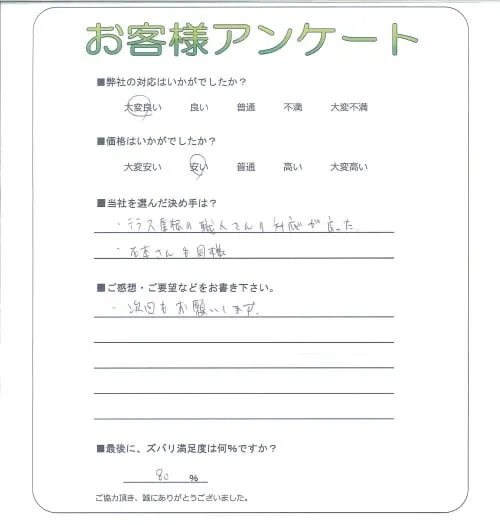 お客様アンケート
■弊社の対応はいかがでしたか？
大変良い 良い 普通 不満 大変不満
■価格はいかがでしたか？
大変安い 安い 普通 高い 大変高い
■当社を選んだ決め手は？
・テラス屋根の職人さんの対応が良った.
さんも同様
■ご感想・ご要望などをお書き下さい。
・次回もお願いします.
■最後に、ズバリ満足度は何%ですか？
80 %
ご協力頂き、誠にありがとうございました。